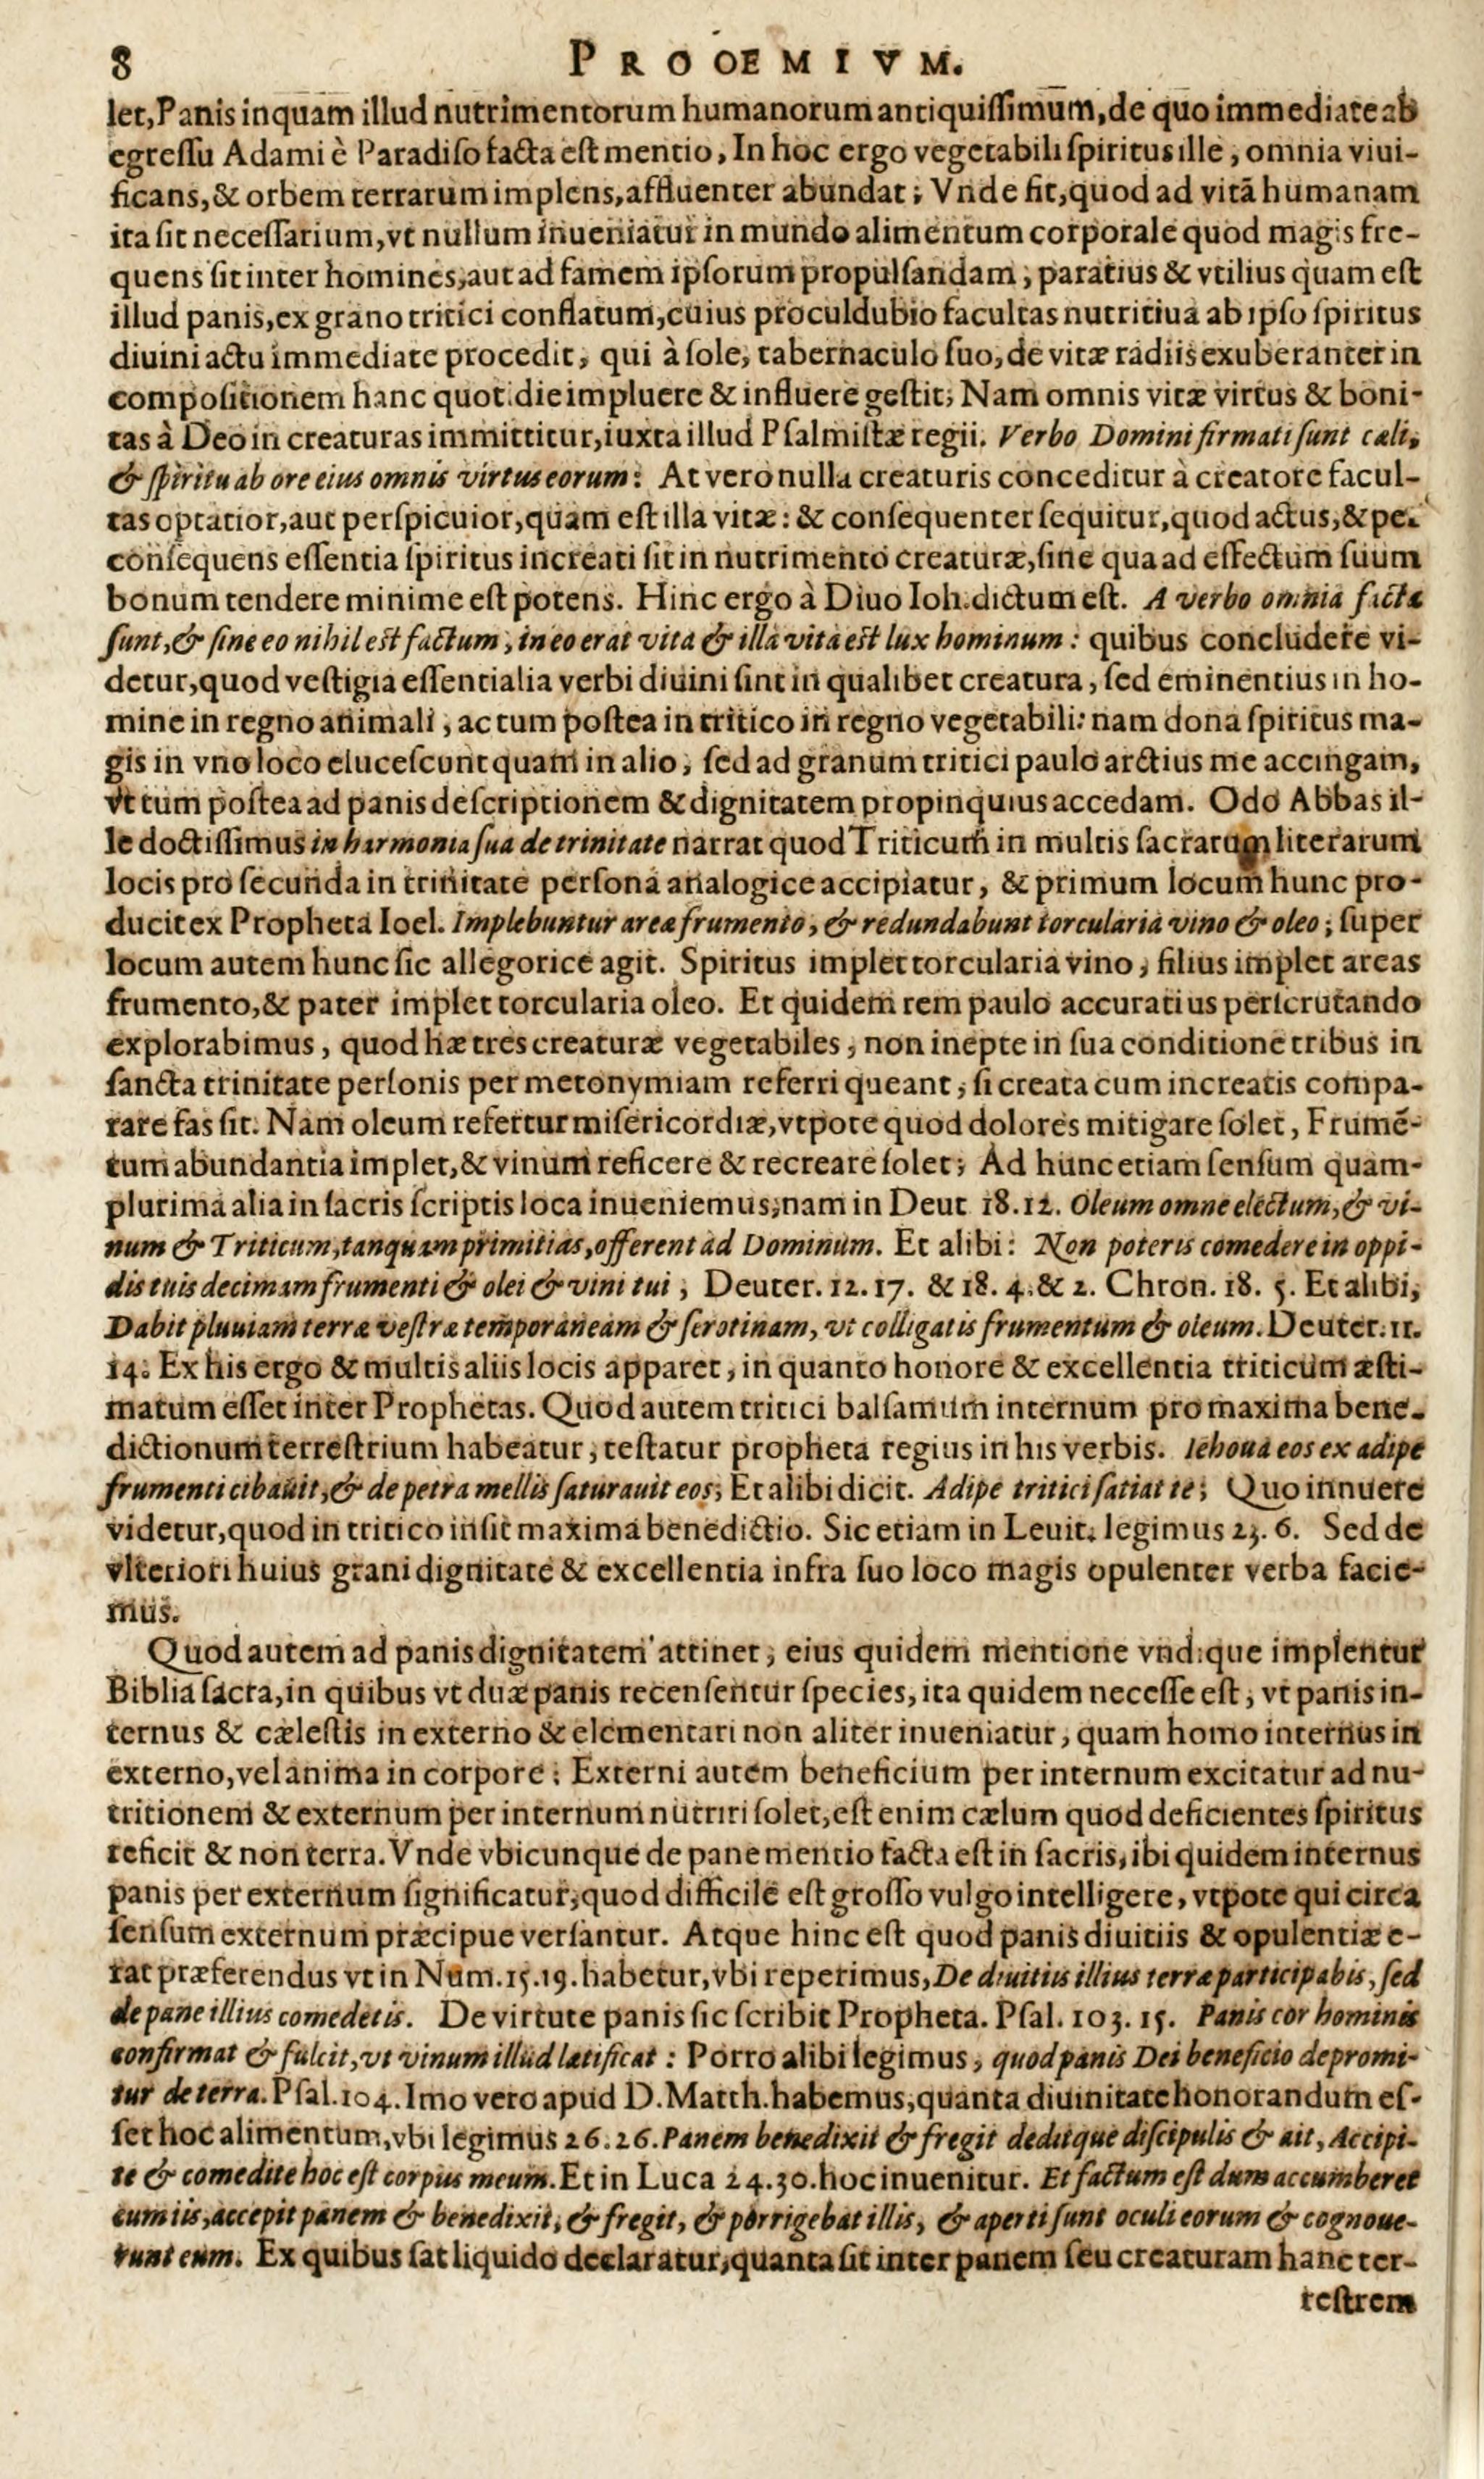 8 PROOEMIVM.
let, Panis inquam illud nutrimentorum humanorum antiquiſſimum, de quo immediate ab
egreſſu Adami è Paradiſo facta eſt mentio, In hoc ergo vegetabili ſpiritus ille, omnia viui-
ficans, & orbem terrarum implens, affluenter abundat; Vnde fit, quod ad vitã humanam
ita ſit neceſſarium, vt nullum inueniatur in mundo alimentum corporale quod magis fre-
quens ſit inter homines, aut ad famem ipſorum propulſandam, paratius & vtilius quam eſt
illud panis, ex grano tritici conflatum, cuius proculdubio facultas nutritiua ab ipſo ſpiritus
diuini actu immediate procedit, qui à ſole, tabernaculo ſuo, de vitæ radiis exuberanter in
compoſitionem hanc quotidie impluere & influere geſtit; Nam omnis vitæ virtus & boni-
tas à Deo in creaturas immittitur, iuxta illud Pſalmiſtæ regii. Verbo Domini firmati ſunt cæli,
& ſpiritu ab ore eius omnis virtus eorum: At vero nulla creaturis conceditur à creatore facul-
tas optatior, aut perſpicuior, quam eſt illa vitæ: & conſequenter ſequitur, quod actus, & pe.
conſequens eſſentia ſpiritus increati ſit in nutrimento creaturæ, ſine qua ad effectum ſuum
bonum tendere minime eſt potens. Hinc ergo à Diuo Ioh. dictum eſt. A verbo omnia facta
ſunt, & ſine eo nihil eſt factum, in eo erat vita & illa vita eſt lux hominum: quibus concludere vi-
detur, quod veſtigia eſſentialia verbi diuini ſint in qualibet creatura, ſed eminentius in ho-
mine in regno animali, ac tum poſtea in tritico in regno vegetabili: nam dona ſpiritus ma-
gis in vno loco eluceſcunt quam in alio, ſed ad granum tritici paulo arctius me accingam,
vt tum poſtea ad panis deſcriptionem & dignitatem propinquius accedam. Odo Abbas il-
le doctiſſimus in harmonia ſua de trinitate narrat quod Triticum in multis ſacrarum literarum
locis pro ſecunda in trinitate perſona analogice accipiatur, & primum locum hunc pro-
ducit ex Propheta Ioel. Implebuntur areæ frumento, & redundabunt torcularia vino & oleo; ſuper
locum autem hunc ſic allegorice agit. Spiritus implet torcularia vino, filius implet areas
frumento, & pater implet torcularia oleo. Et quidem rem paulo accuratius perſcrutando
explorabimus, quod hæ tres creaturæ vegetabiles, non inepte in ſua conditione tribus in
ſancta trinitate perſonis per metonymiam referri queant, ſi creata cum increatis compa-
rare fas ſit. Nam oleum refertur miſericordiæ, vtpote quod dolores mitigare ſolet, Frumẽ-
tum abundantia implet, & vinum reficere & recreare ſolet; Ad hunc etiam ſenſum quam-
plurima alia in ſacris ſcriptis loca inueniemus, nam in Deut 18.12. Oleum omne electum, & vi-
num & Triticum, tanquam primitias, offerent ad Dominum. Et alibi: Non poteris comedere in oppi-
dis tuis decimam frumenti & olei & vini tui, Deuter. 12. 17. & 18. 4. & 2. Chron. 18. 5. Et alibi,
Dabit pluuiam terræ veſtræ temporaneam & ſerotinam, vt colligatis frumentum & oleum. Deuter. 11.
14. Ex his ergo & multis aliis locis apparet, in quanto honore & excellentia triticum æſti-
matum eſſet inter Prophetas. Quod autem tritici balſamum internum pro maxima bene-
dictionum terreſtrium habeatur, teſtatur propheta regius in his verbis. Iehoua eos ex adipe
frumenti cibauit, & de petra mellis ſaturauit eos; Et alibi dicit. Adipe tritici ſatiat te; Quo innuere
videtur, quod in tritico inſit maxima benedictio. Sic etiam in Leuit. legimus 23. 6. Sed de
vlteriori huius grani dignitate & excellentia infra ſuo loco magis opulenter verba facie-
mus.
Quod autem ad panis dignitatem attinet, eius quidem mentione vndique implentur
Biblia ſacra, in quibus vt duæ panis recenſentur ſpecies, ita quidem neceſſe eſt, vt panis in-
ternus & cæleſtis in externo & elementari non aliter inueniatur, quam homo internus in
externo, vel anima in corpore: Externi autem beneficium per internum excitatur ad nu-
tritionem & externum per internum nutriri ſolet, eſt enim cælum quod deficientes ſpiritus
reficit & non terra. Vnde vbicunque de pane mentio facta eſt in ſacris, ibi quidem internus
panis per externum ſignificatur, quod difficile eſt groſſo vulgo intelligere, vtpote qui circa
ſenſum externum præcipue verſantur. Atque hinc eſt quod panis diuitiis & opulentiæ e-
rat præferendus vt in Num. 15. 19. habetur, vbi reperimus, De diuitiis illius terræ participabis, ſed
de pane illius comedetis. De virtute panis ſic ſcribit Propheta. Pſal. 103. 15. Panis cor hominis
confirmat & fulcit, vt vinum illud lætificat: Porro alibi legimus, quod panis Dei beneficio depromi-
tur de terra. Pſal. 104. Imo vero apud D. Matth. habemus, quanta diuinitate honorandum eſ-
ſet hoc alimentum, vbi legimus 26. 26. Panem benedixit & fregit deditque diſcipulis & ait, Accipi-
te & comedite hoc eſt corpus meum. Et in Luca 24. 30. hoc inuenitur. Et factum eſt dum accumberet
cum iis, accepit panem & benedixit, & fregit, & porrigebat illis, & aperti ſunt oculi eorum & cognoue-
runt eum. Ex quibus ſat liquido declaratur, quanta ſit inter panem ſeu creaturam hanc ter-
reſtrem